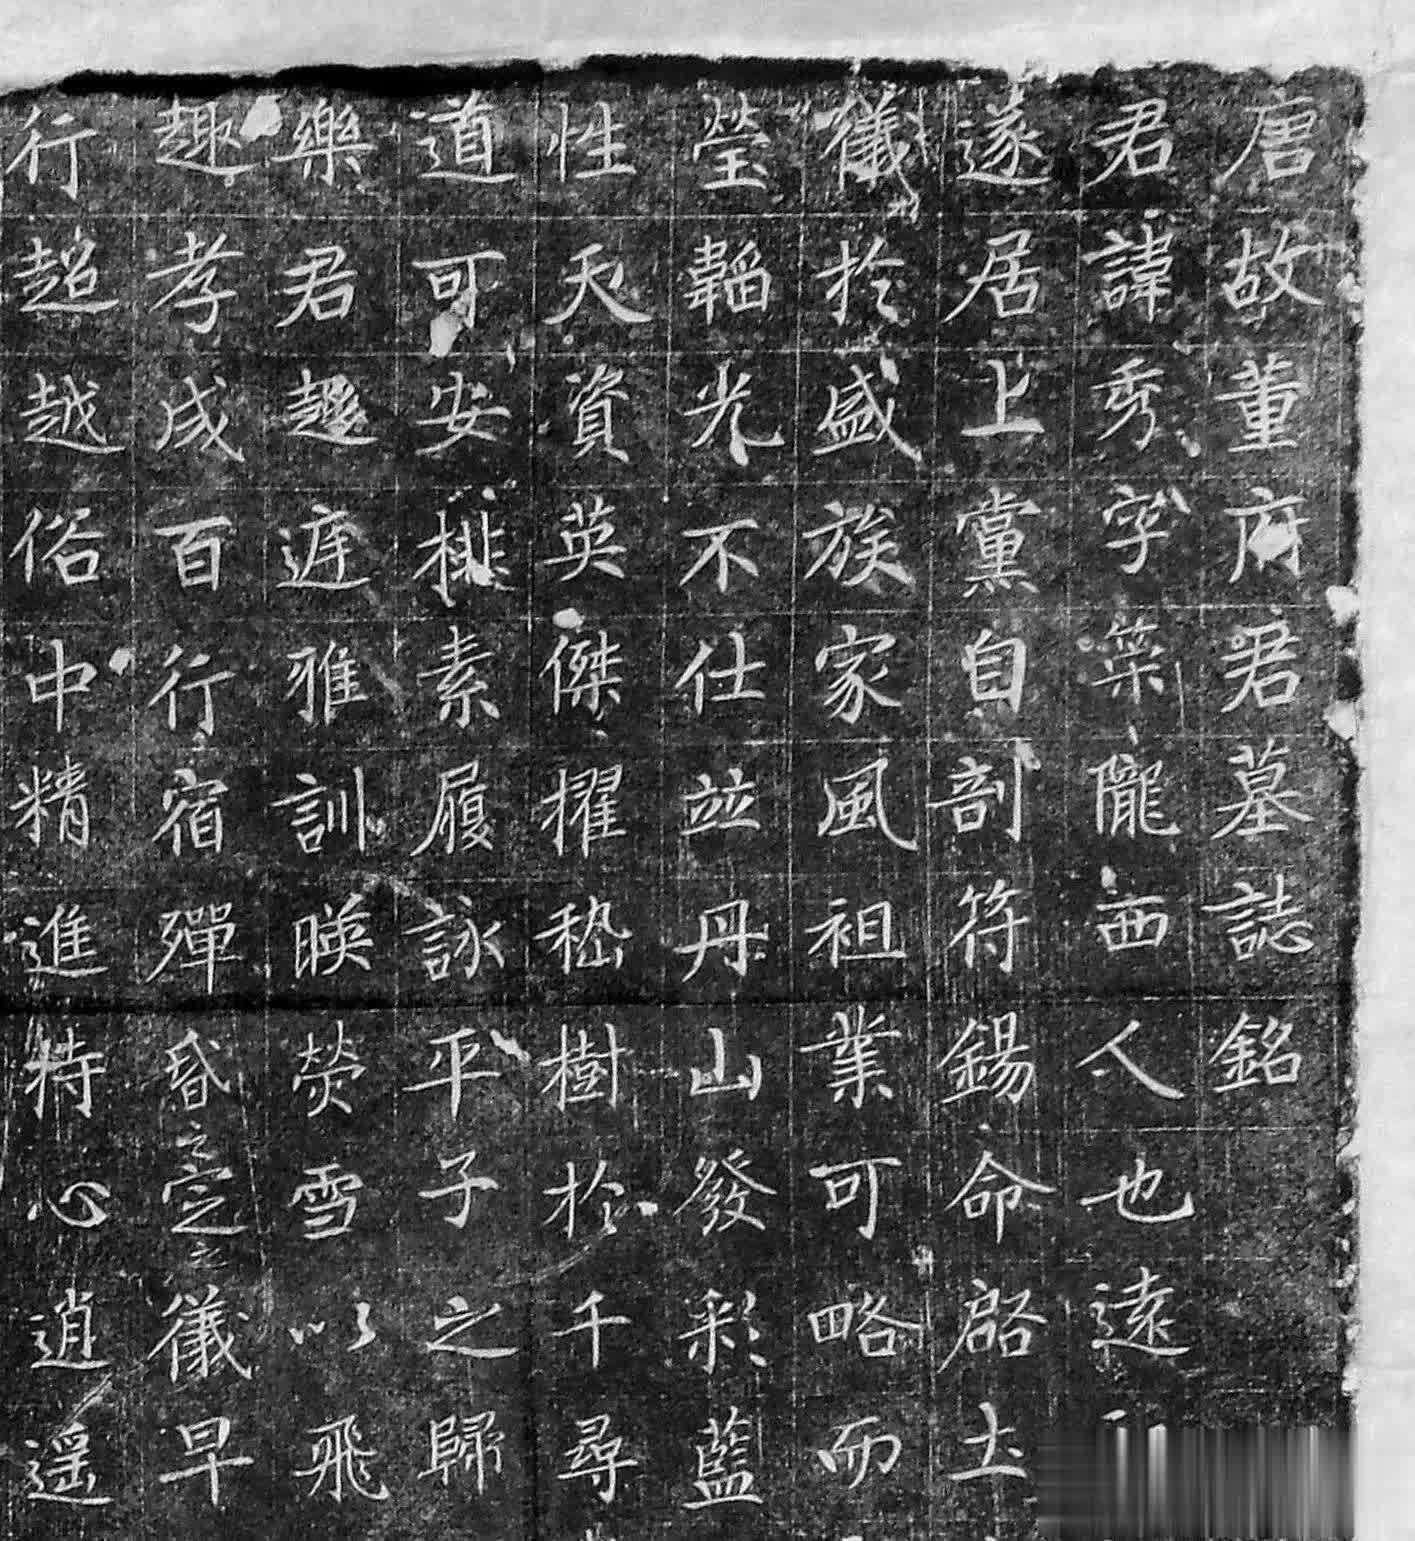 唐故董府君墓誌銘
君諱秀字榮隴西人也遠
遂居上黨自剖符錫命啟土
儀於盛族家風祖業可略而
瑩韜光不仕竝丹山發彩藍
性天資英傑擢嵇樹於千尋
道可安棑素履詠平子之歸
樂君趍遊雅訓暎熒雪以飛
趣孝成百行宿殫昏定之儀早
行超越俗中精進持心逍遥